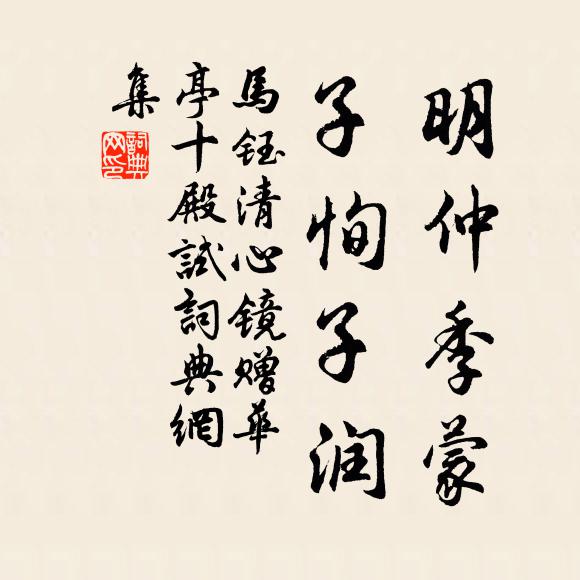 明仲季蒙
子恂子润
馬鈺清心镜贈華
亭十殿試詞典網
集
詞典网印